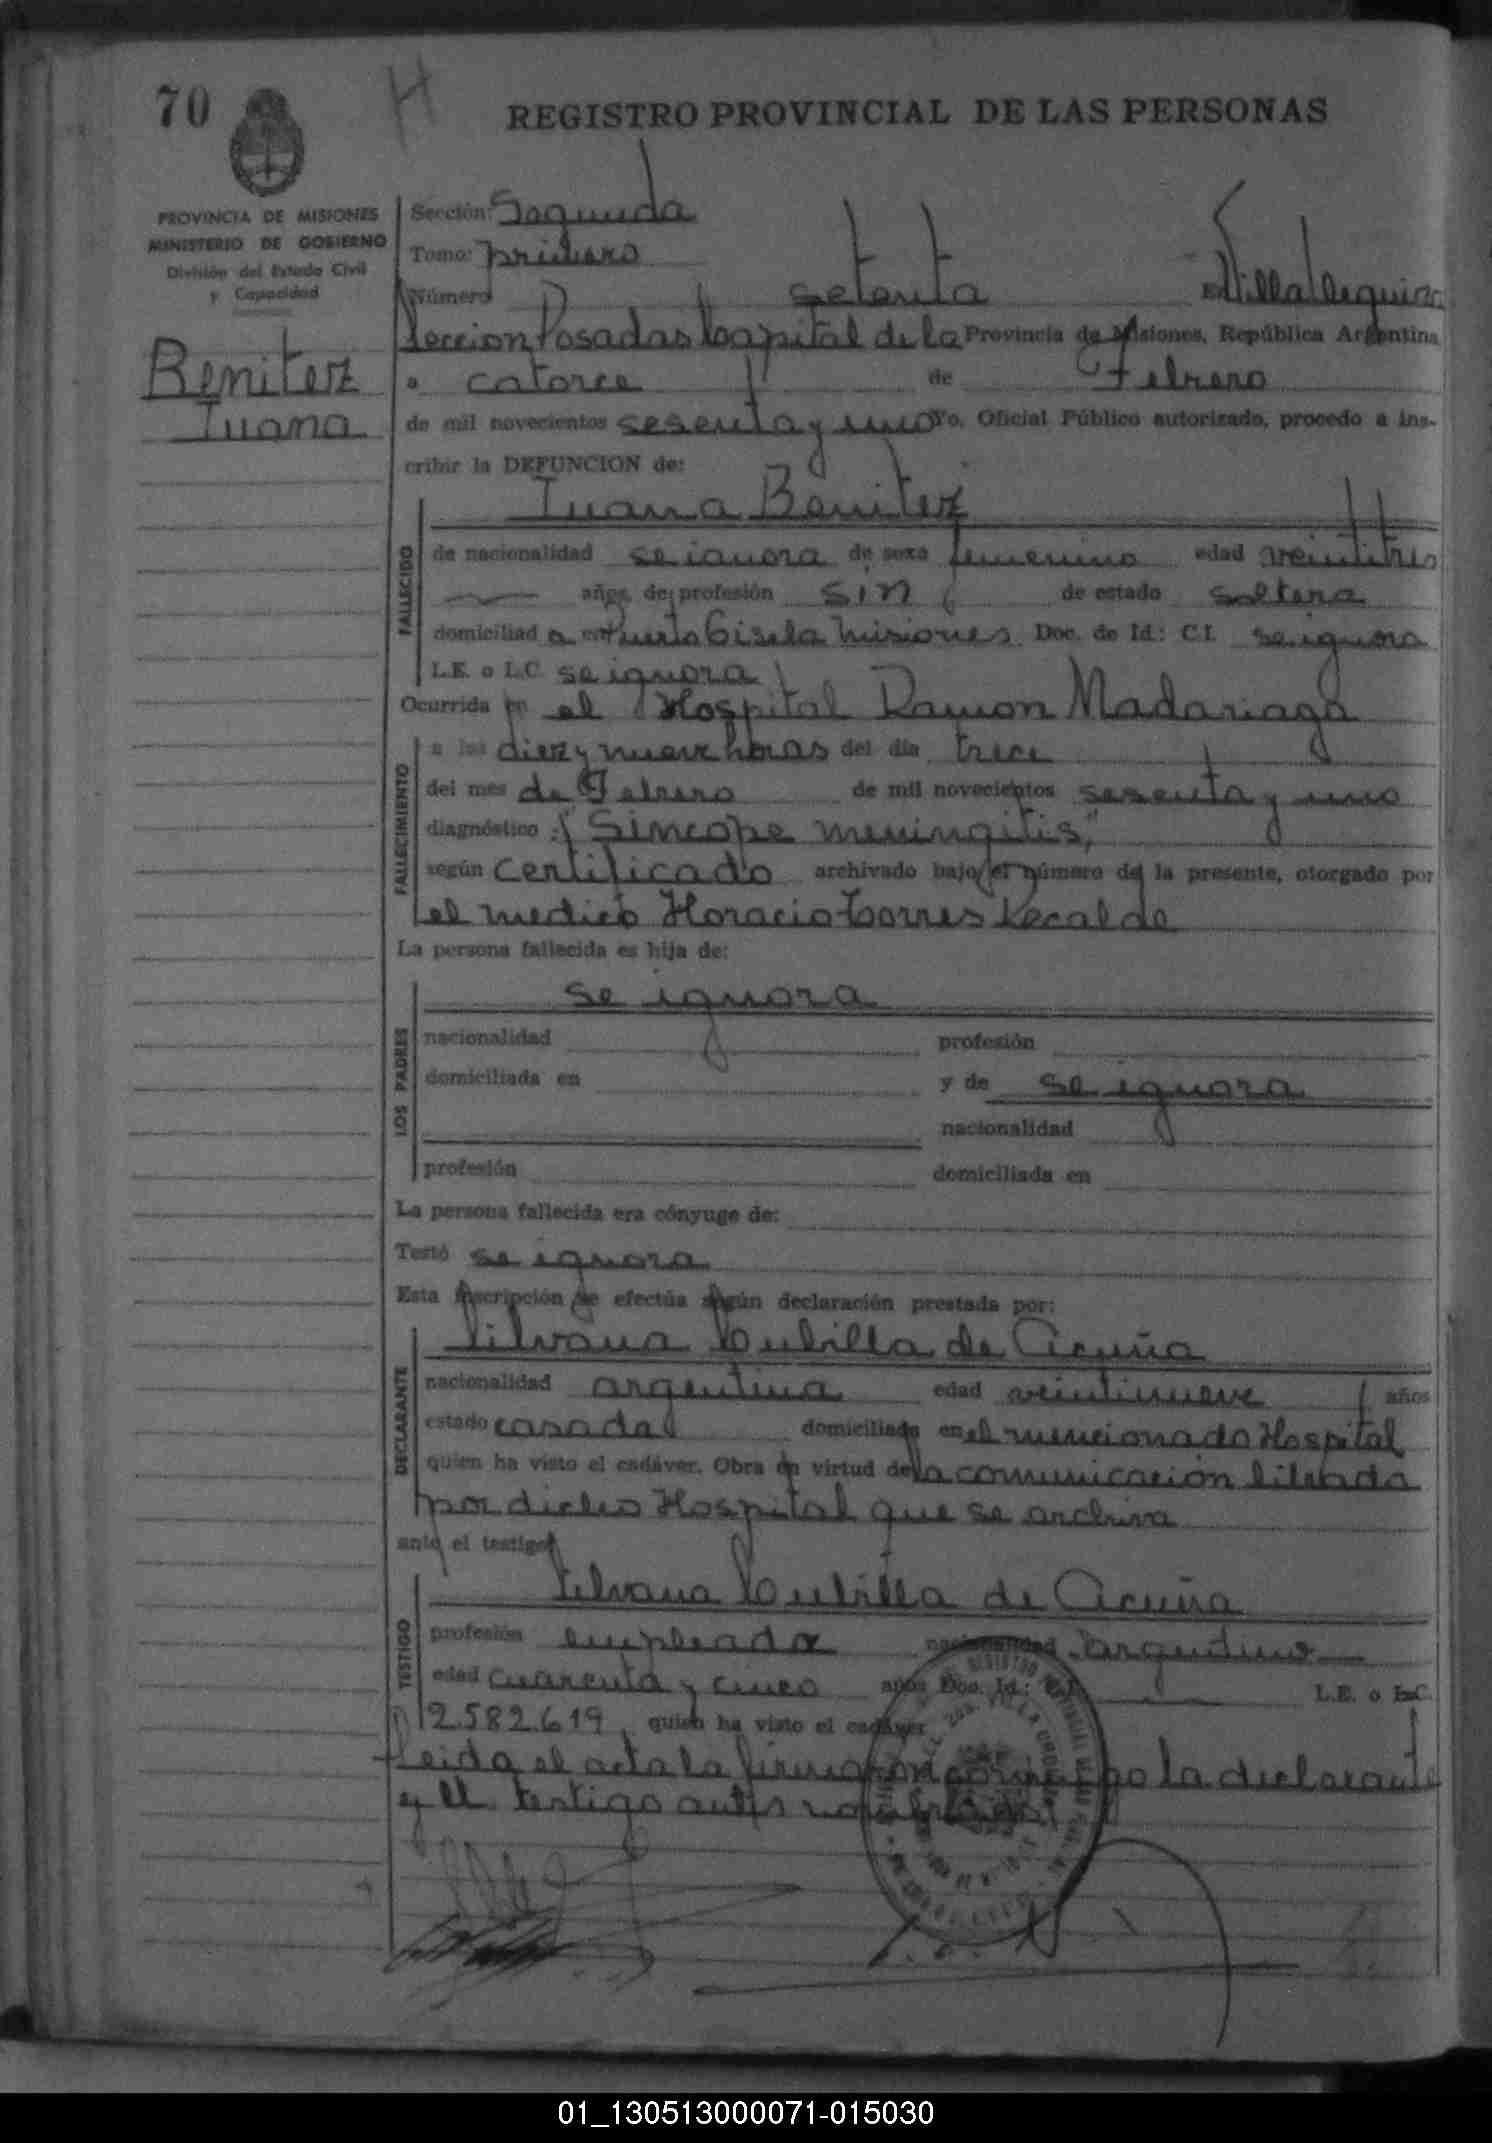 70 H
REGISTRO PROVINCIAL DE LAS PERSONAS
PROVINCIA DE MISIONES
MINISTERIO DE GOBIERNO
División del Estado Civil
y Capacidad
Benitez
Juana
Sección: Segunda
Tomo: primero
Número setenta En Villa Urquiza
Seccion Posadas Capital de la Provincia de Misiones, República Argentina
a catorce de Febrero
de mil novecientos sesenta y uno Yo, Oficial Público autorizado, procedo a ins-
cribir la DEFUNCION de:
Juana Benitez
FALLECIDO
de nacionalidad se ignora de sexo femenino edad veintitres
años, de profesión sin de estado soltera
domiciliad a en Puerto Gisela Misiones Doc. de Id.: C.I. se ignora
L.E. o L.C. se ignora
Ocurrida en el Hospital Ramon Madariaga
FALLECIMIENTO
a las diez y nueve horas del día trece
del mes de Febrero de mil novecientos sesenta y uno
diagnóstico: "Sincope meningitis"
según certificado archivado bajo el número de la presente, otorgado por
el medico Horacio Torres Recalde
La persona fallecida es hija de:
LOS PADRES
se ignora
nacionalidad profesión
domiciliada en y de se ignora
nacionalidad
profesión domiciliada en
La persona fallecida era cónyuge de:
Testó se ignora
Esta inscripción se efectúa según declaración prestada por:
DECLARANTE
Silvana Cubilla de Acuña
nacionalidad argentina edad veintinueve años
estado casada domiciliada en el mencionado Hospital
quien ha visto el cadáver. Obra en virtud de la comunicación librada
por dicho Hospital que se archiva
ante el testigo
TESTIGO
Silvana Cubilla de Acuña
profesión empleado nacionalidad argentino
edad cuarenta y cinco años Doc. Id.: L.E. o L.C.
2.582.619 quien ha visto el cadáver
Leida el acta la firmaron conmigo la declarante
y el testigo antes nombrados
01_130513000071-015030